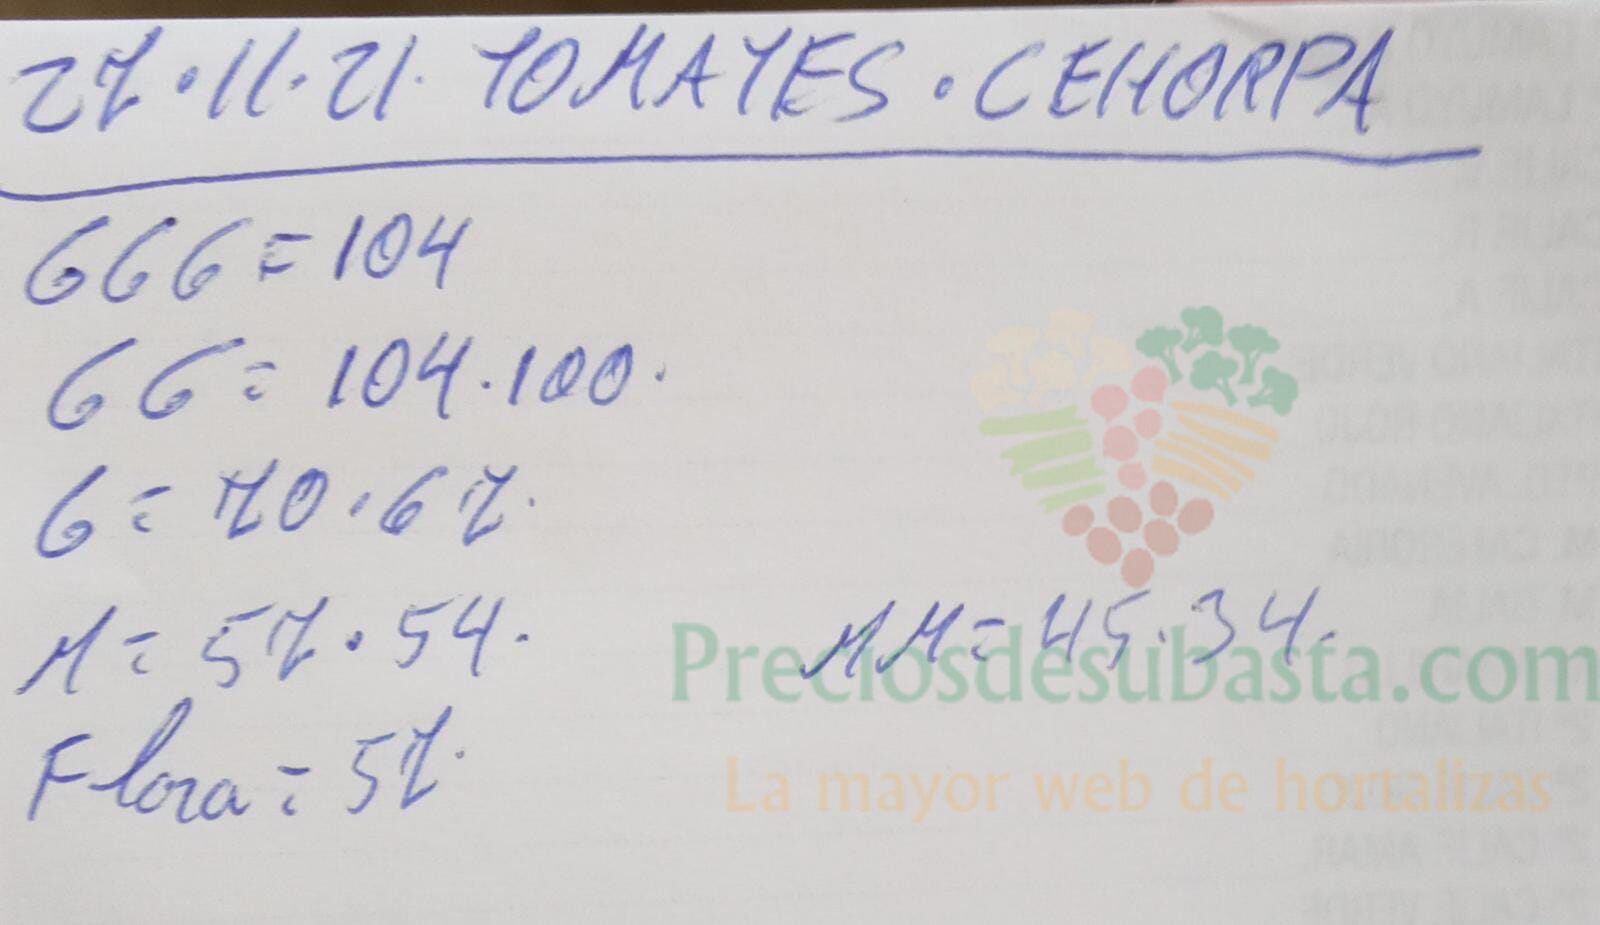 27.11.21. TOMATES. CEHORPA
GGG = 104
GG = 104.100.
G = 70.67.
M = 57.54. MM = 45.34.
Flora = 57.
Preciosdesubasta.com
La mayor web de hortalizas